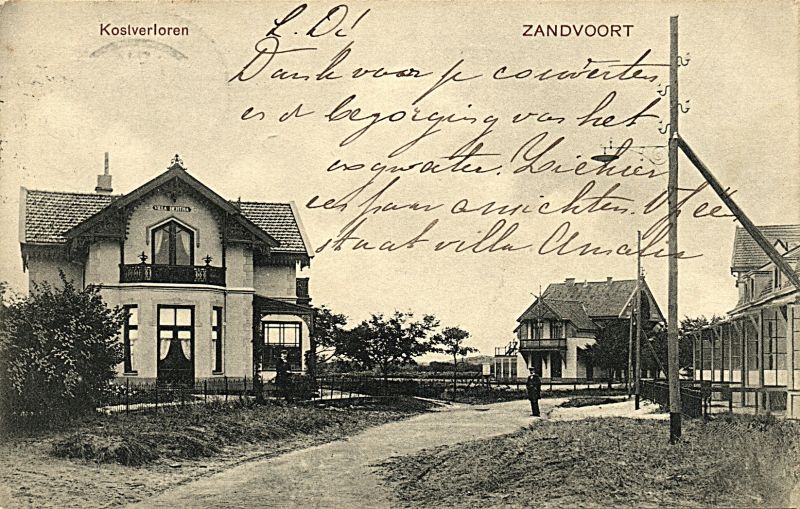 Kostverloren
ZANDVOORT
L. D!
Dank voor je couverten
en de bezorging van het
oogwater. Hiehier
een paar ansichten. Op één
staat villa Amalia
VILLA BERTHA